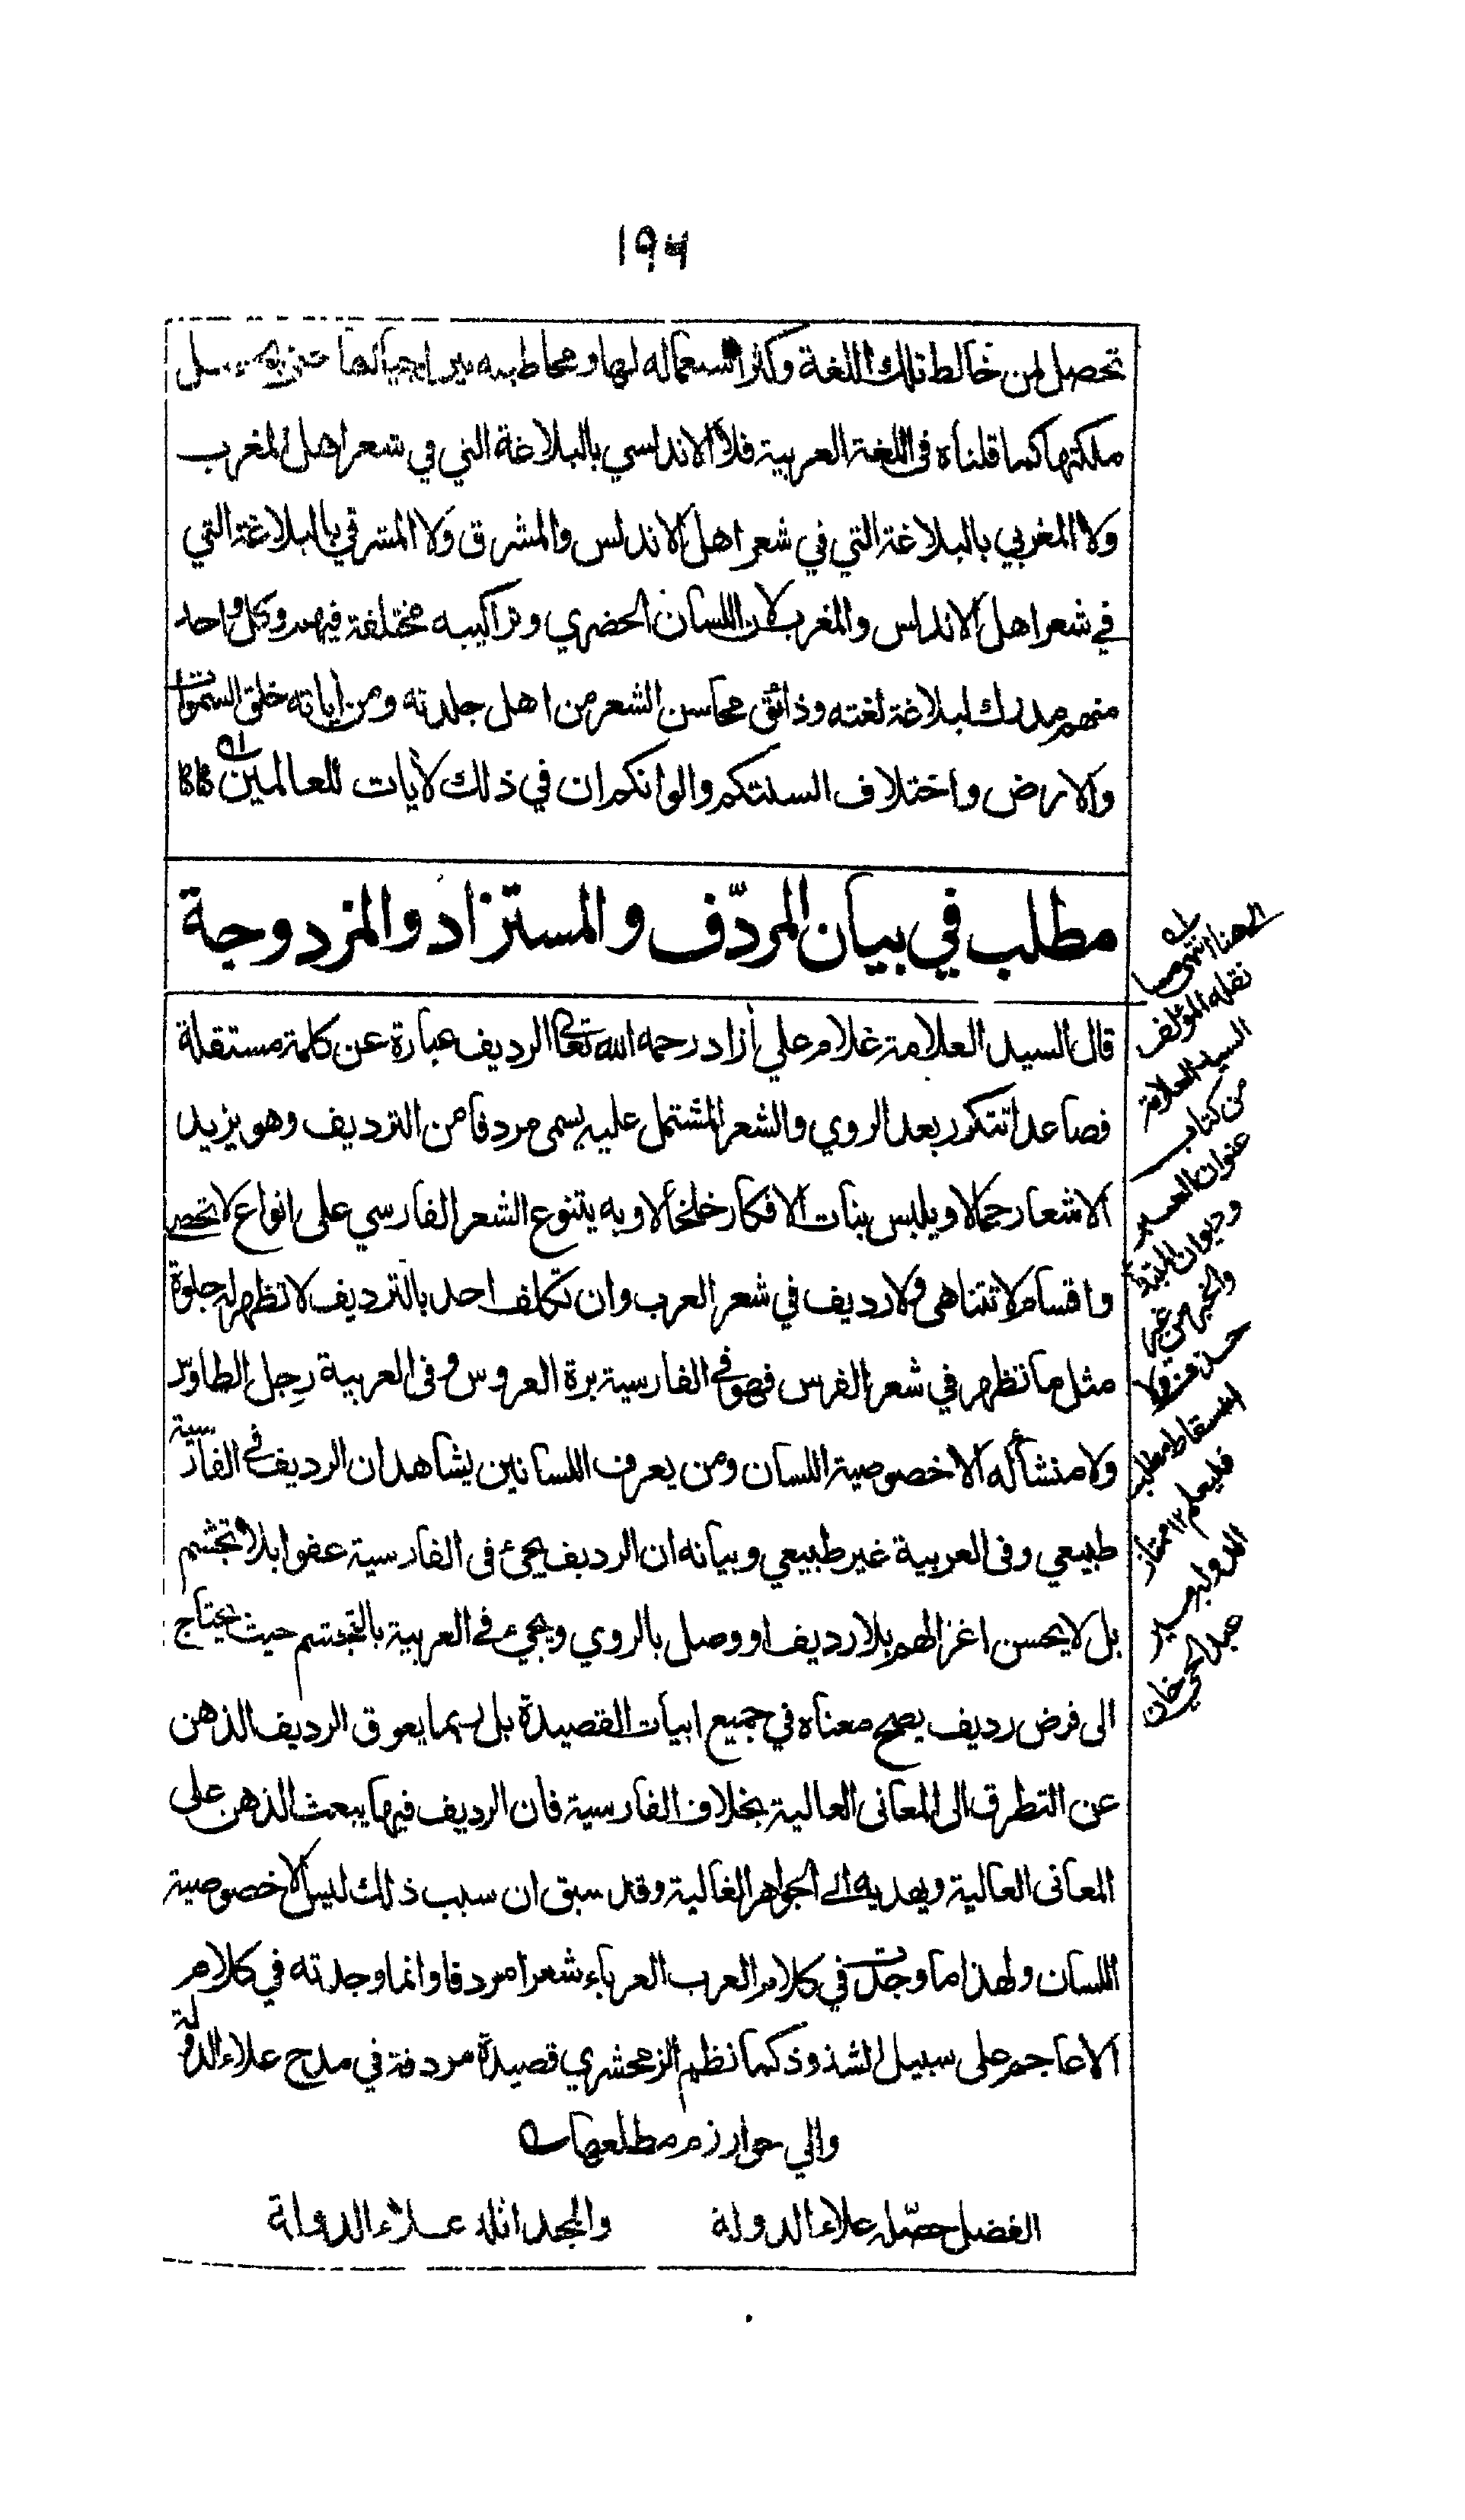 ١٩٦
تحصل لمن خالط تلك اللغة وكثر استعماله لها ومخاطبته بين اجيالها حتى يحصل
ملكتها كما قلناه فى اللغة العربية فلا الاندلسي بالبلاغة التي في شعر اهل المغرب
ولا المغربي بالبلاغة التي في شعر اهل الاندلس والمشرق ولا المشرقي بالبلاغة التي
في شعر اهل الاندلس والمغرب لان اللسان الحضري وتراكيبه مختلفة فيهم وكل واحد
منهم مدرك لبلاغة لغته وذائق محاسن الشعر من اهل جلدته ومن اياته خلق السموات
والارض واختلاف السنتكم والوانكم ان في ذلك لأيات للعالمين
مطلب في بيان المردّف والمستزاد والمزدوجة
قال السيد العلامة غلام علي أزاد رحمه الله تعالى الرديف عبارة عن كلمة مستقلة
فصاعدا تتكرر بعد الروي والشعر المشتمل عليه يسمى مردفا من الترديف وهو يزيد
الاشعار جمالا ويلبس بنات الافكار خلخالا وبه يتنوع الشعر الفارسي على انواع لا تحصى
واقسام لا تتناهى ولا رديف في شعر العرب وان تكلف احد بالترديف لا تظهر له جلوة
مثل ما تظهر في شعر الفرس فهو في الفارسية برة العروس وفى العربية رجل الطاوس
ولا منشأ له الا خصوصية اللسان ومن يعرف اللسانين يشاهد ان الرديف في الفارسية
طبيعي وفى العربية غير طبيعي وبيانه ان الرديف يجئ فى الفارسية عفوا بلا تجشم
بل لا يحسن اغزالهم بلا رديف او وصل بالروي ويجئ في العربية بالتجشم حيث يحتاج
الى فرض رديف يصح معناه في جميع ابيات القصيدة بل ربما يعوق الرديف الذهن
عن التطرق الى المعانى العالية بخلاف الفارسية فان الرديف فيها يبعث الذهن على
المعانى العالية ويهديه الى الجواهر الغالية وقد سبق ان سبب ذلك ليس الا خصوصية
اللسان ولهذا ما وجدت في كلام العرب العرباء شعرا مردفا وانما وجدته في كلام
الاعاجم على سبيل الشذوذ كما نظم الزمخشري قصيدة مردفة في مدح علاء الدولة
والي خوارزم مطلعها
الفضل حصّله علاء الدولة والمجد اثله علاء الدولة
نقله المؤلف
السيد العلامة
من كتاب
عنوان العبر
وديوان المبتدأ
والخبر من غير
فليعلم ١٢ ممتاز
الدوله مير
عبد الحي خان